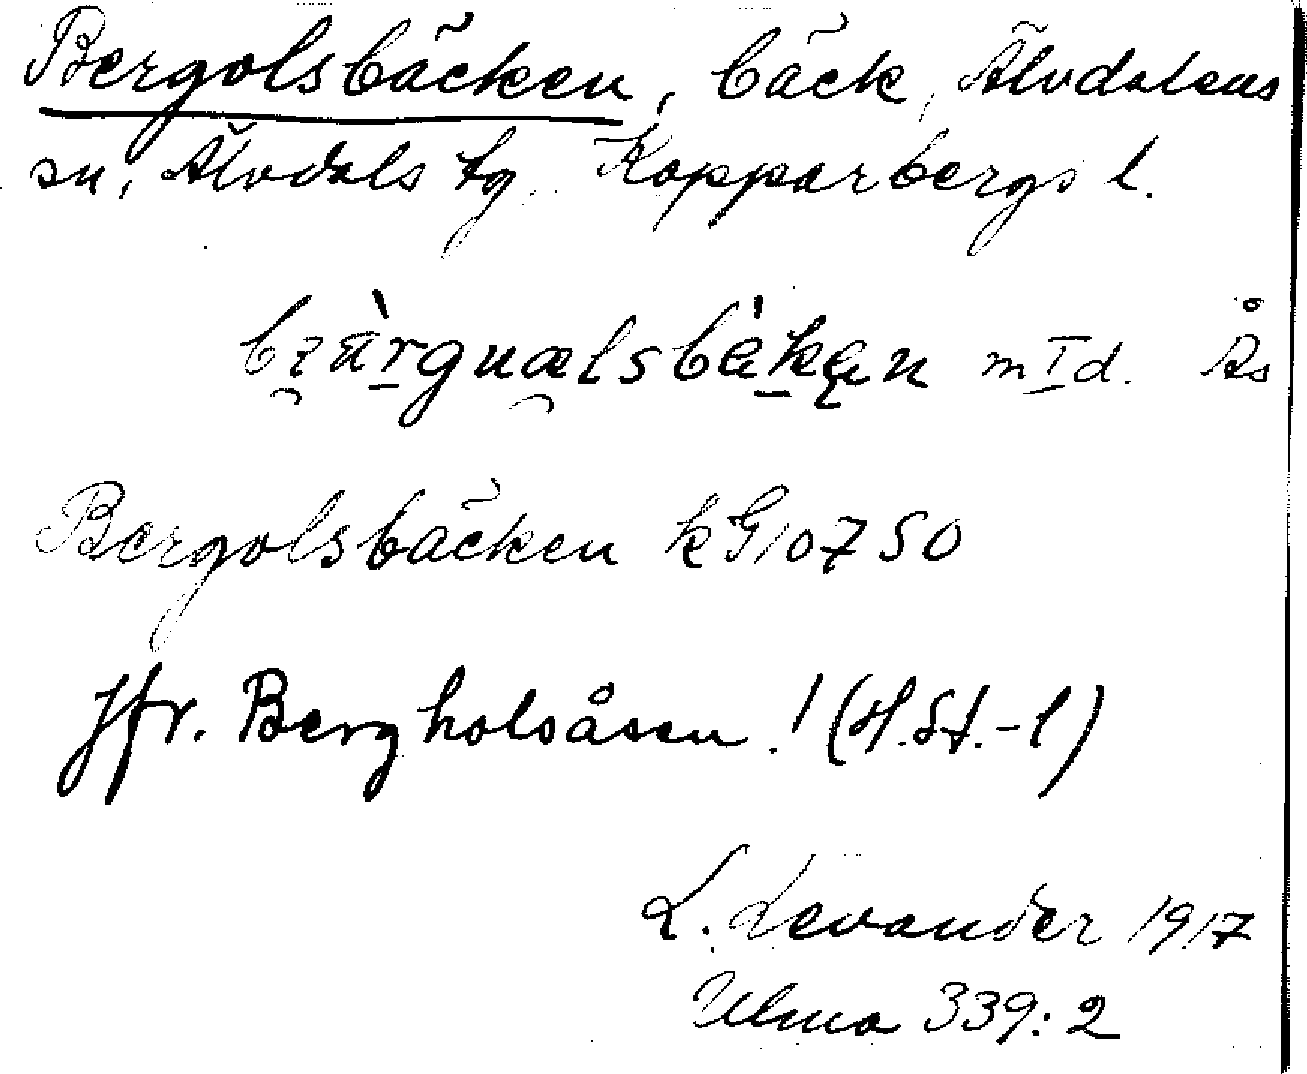 Bergolsbäcken, bäck, Älvdalens
sn, Älvdals tg. Kopparbergs l.
mId. Ås
Bergolsbäcken kG10750
Jfr. Bergholsåsen! (H.St.-l)
L. Levander 1917
Ulma 339:2